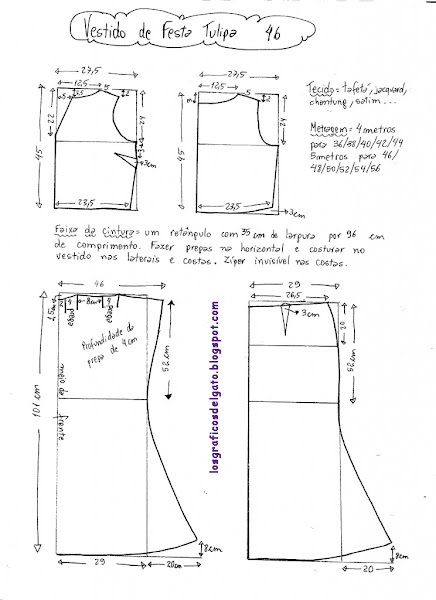 Vestido de Festa Tulipa 46
27,5
12,5
5
5
2
22
24
45
3
3cm
23,5
27,5
12,5
5
2
24
45
23,5
3cm
Tecido = tafetá, jacquard,
shantung, cetim...
Metragem = 4 metros
para 36/38/40/42/44
5 metros para 46/
48/50/52/54/56
Faixa da Cintura = um retângulo com 35 cm de largura por 96 cm
de comprimento. Fazer pregas na horizontal e costurar no
vestido nas laterais e costas. Zíper invisível nas costas.
46
1,5cm
4
8cm
4
prega
prega
Profundidade da
prega de 4 cm
52cm
101 cm
meio da
frente
8cm
29
20cm
29
26,5
3cm
20
52cm
8cm
20
losgraficosdelgato.blogspot.com